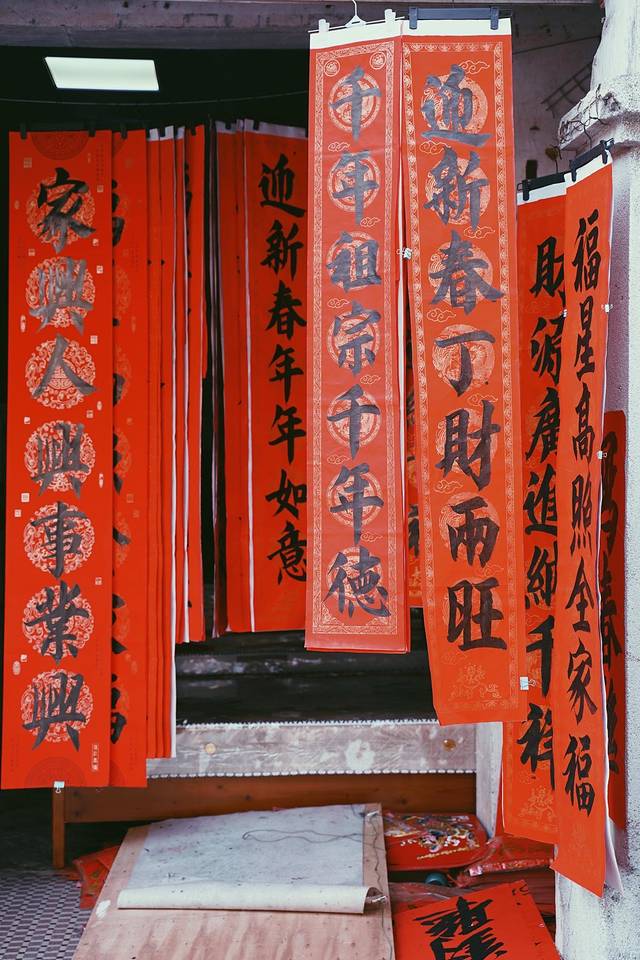 家興人興事業興
迎新春年年如意
千年祖宗千年德
迎新春丁財兩旺
財源廣進納千祥
福星高照全家福